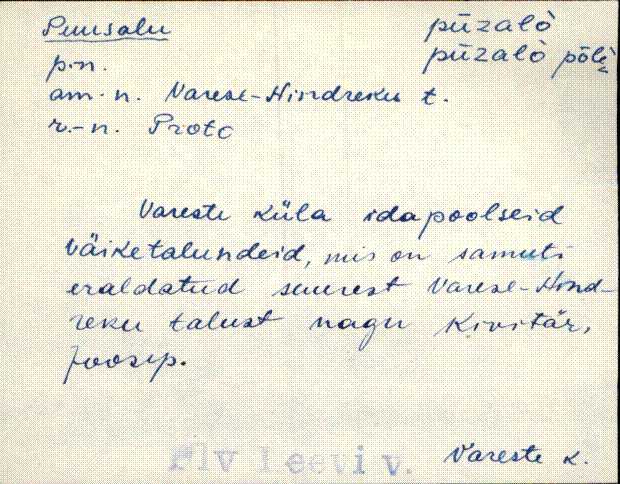 Puusalu
pūzalò
p.n.
pūzalò
am.n. Varese-Hindreku t.
r.-n. Proto
Vareste küla idapoolseid
väiketalundeid, mis on samuti
eraldatud suurest Varese-Hind-
reku talust nagu Kivitär,
Joosep.
Plv Leevi v. Vareste k.